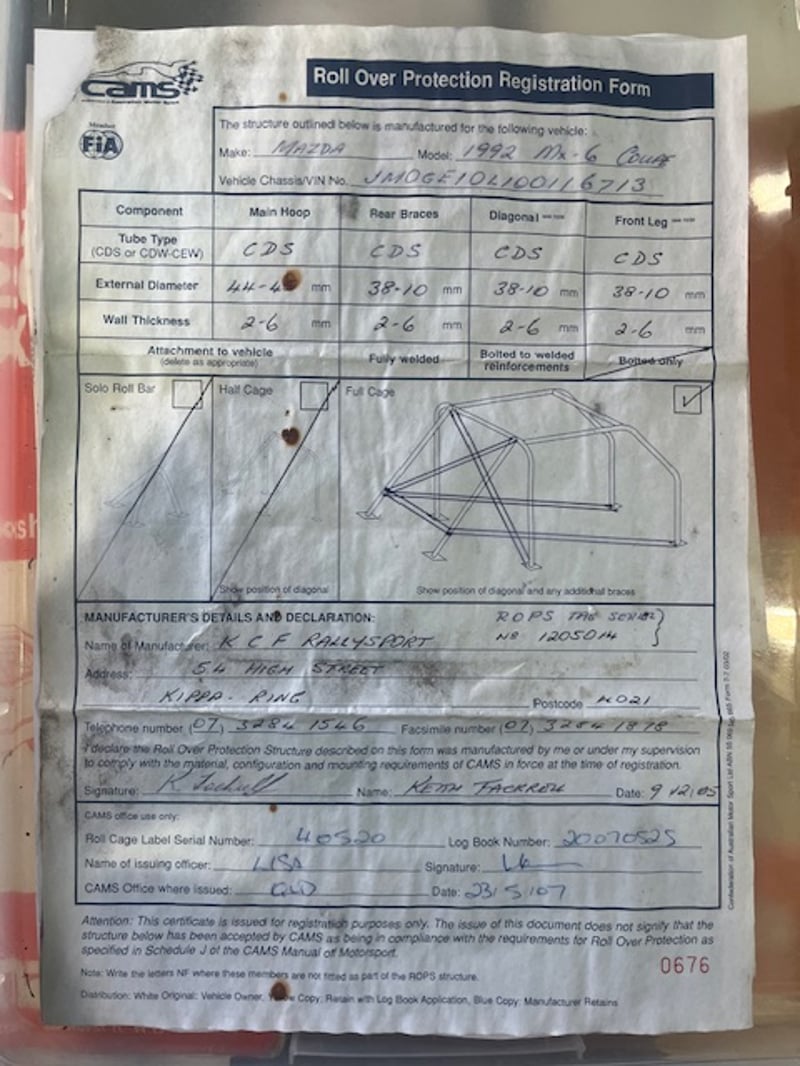 cams
Roll Over Protection Registration Form
Member
FiA
The structure outlined below is manufactured for the following vehicle:
Make: MAZDA Model: 1992 MX-6 COUPE
Vehicle Chassis/VIN No. JM0GE10L100116713
Component Main Hoop Rear Braces Diagonal Front Leg
Tube Type CDS CDS CDS CDS
(CDS or CDW-CEW)
External Diameter 44-4 mm 38-10 mm 38-10 mm 38-10 mm
Wall Thickness 2-6 mm 2-6 mm 2-6 mm 2-6 mm
Attachment to vehicle Fully welded Bolted to welded Bolted only
(delete as appropriate) reinforcements
Solo Roll Bar Half Cage Full Cage ✓
Show position of diagonal Show position of diagonal and any additional braces
MANUFACTURER'S DETAILS AND DECLARATION: ROPS TAG SERIAL
Name of Manufacturer: KCF RALLYSPORT No 1205014
Address: 54 HIGH STREET
KIPPA-RING Postcode 4021
Telephone number (07) 3284 1546 Facsimile number (07) 3284 1878
I declare the Roll Over Protection Structure described on this form was manufactured by me or under my supervision
to comply with the material, configuration and mounting requirements of CAMS in force at the time of registration.
Signature: Name: KEITH FACKRELL Date: 9/12/05
CAMS office use only:
Roll Cage Label Serial Number: 40520 Log Book Number: 20070525
Name of issuing officer: LISA Signature:
CAMS Office where issued: QLD Date: 23/5/07
Attention: This certificate is issued for registration purposes only. The issue of this document does not signify that the
structure below has been accepted by CAMS as being in compliance with the requirements for Roll Over Protection as
specified in Schedule J of the CAMS Manual of Motorsport.
0676
Note: Write the letters NF where these members are not fitted as part of the ROPS structure.
Distribution: White Original: Vehicle Owner, Yellow Copy: Retain with Log Book Application, Blue Copy: Manufacturer Retains
Confederation of Australian Motor Sport Ltd ABN 55 069